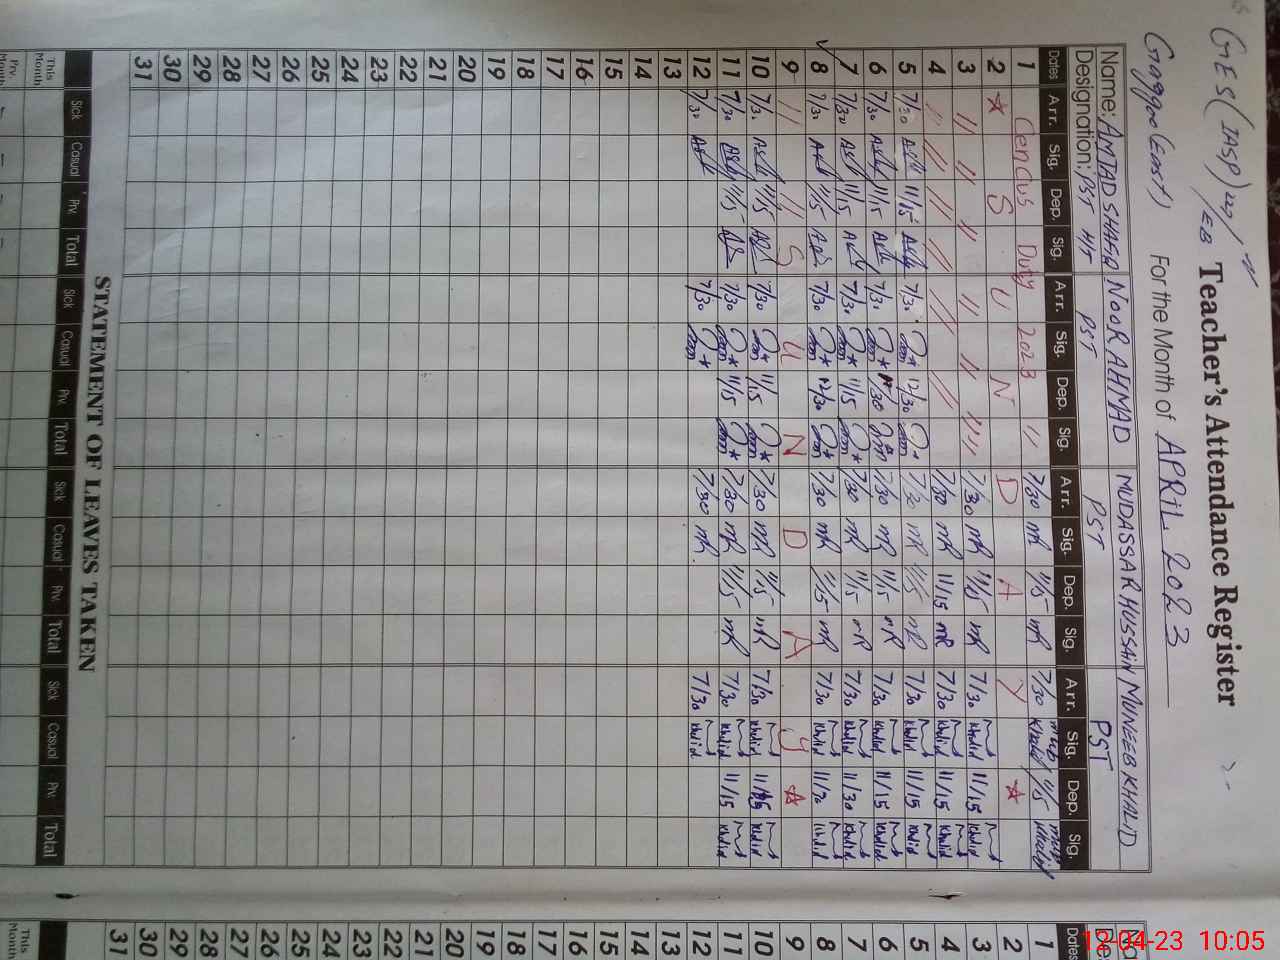 GES (IASP) /EB Teacher's Attendance Register
Gaggoo (East) For the Month of APRIL 2023
Name: AMJAD SHAFIQ NOOR AHMAD MUDASSAR HUSSAIN MUNEEB KHALID
Designation: PST PST PST PST
Dates Arr. Sig. Dep. Sig. Arr. Sig. Dep. Sig. Arr. Sig. Dep. Sig. Arr. Sig. Dep. Sig.
1 Cencus Duty 2023 " 7/30 mR 11/15 mR 7/30 Khalid 11/15 Khalid
2 S U N D A Y
3 " " " " " " " " 7/30 mR 11/15 mR 7/30 Khalid 11/15 Khalid
4 " " " " " " " 7/30 mR 11/15 mR 7/30 Khalid 11/15 Khalid
5 7/30 11/15 7/30 12/30 7/30 mR 11/15 mR 7/30 Khalid 11/15 Khalid
6 7/30 11/15 7/30 12/30 7/30 mR 11/15 mR 7/30 Khalid 11/15 Khalid
7 7/30 11/15 7/30 11/15 7/30 mR 11/15 mR 7/30 Khalid 11/30 Khalid
8 7/30 11/15 7/30 12/30 7/30 mR 11/15 mR 7/30 Khalid 11/30 Khalid
9 " " S U N D A Y
10 7/30 11/15 7/30 11/15 7/30 mR 11/15 mR 7/30 Khalid 11/15 Khalid
11 7/30 11/15 7/30 11/15 7/30 mR 11/15 mR 7/30 Khalid 11/15 Khalid
12 7/30 7/30 7/30 mR 7/30 Khalid
13
14
15
16
17
18
19
20
21
22
23
24
25
26
27
28
29
30
31
STATEMENT OF LEAVES TAKEN
Sick Casual Prv. Total Sick Casual Prv. Total Sick Casual Prv. Total Sick Casual Prv. Total
This Month
Prv.
Dates
1
2
3
4
5
6
7
8
9
10
11
12
13
14
15
16
17
18
19
20
21
22
23
24
25
26
27
28
29
30
31
This Month
12-04-23 10:05